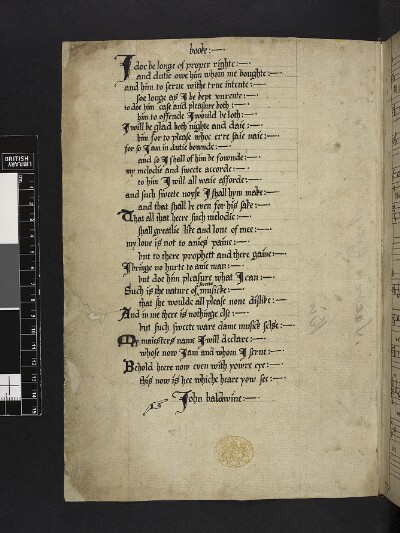 booke:—.
I doe be longe of proper righte:—.
and dutie owe him whom me boughte:—.
and him to serue withe true intente:—.
soe longe as I be kept vnrente:—.
to doe him ease and pleasure both:—.
him to offende I would be loth:—.
I will be glad both nighte and daie:—.
him for to please whoe ere saie naie:—.
for so I am in dutie bownde:—.
and so I shall of him be fownde:—.
my melodie and sweete accorde:—.
to him I will all waie afforde:—.
and such sweete noyse I shall hym make:—.
and that shall be even for his sake:—.
That all that heere such melodie:—.
shall greatlie like and loue of mee:—.
my loue is not to anies paine:—.
but to there prophett and there gaine:—.
I bringe no hurte to anie man:—.
but doe him pleasure what I can:—.
Such is the nature of sweete musicke:—.
that she woulde all please none dislike:—.
And in me there is nothinge els:—.
but such sweete ware dame musick sels:—.
My maiesters name I will declare:—.
whose now I am and whom I serue:—.
Behold heere now even with youre eye:—.
this now is hee whiche heare yow see:—.
John baldwine:—.
BRITISH
LIBRARY